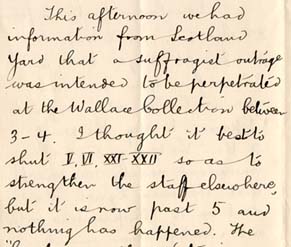 This afternoon we had
information from Scotland
Yard that a suffragist outrage
was intended to be perpetrated
at the Wallace Collection between
3-4. I thought it best to
shut V, VI, XXI-XXII so as to
strengthen the staff elsewhere,
but it is now past 5 and
nothing has happened. The